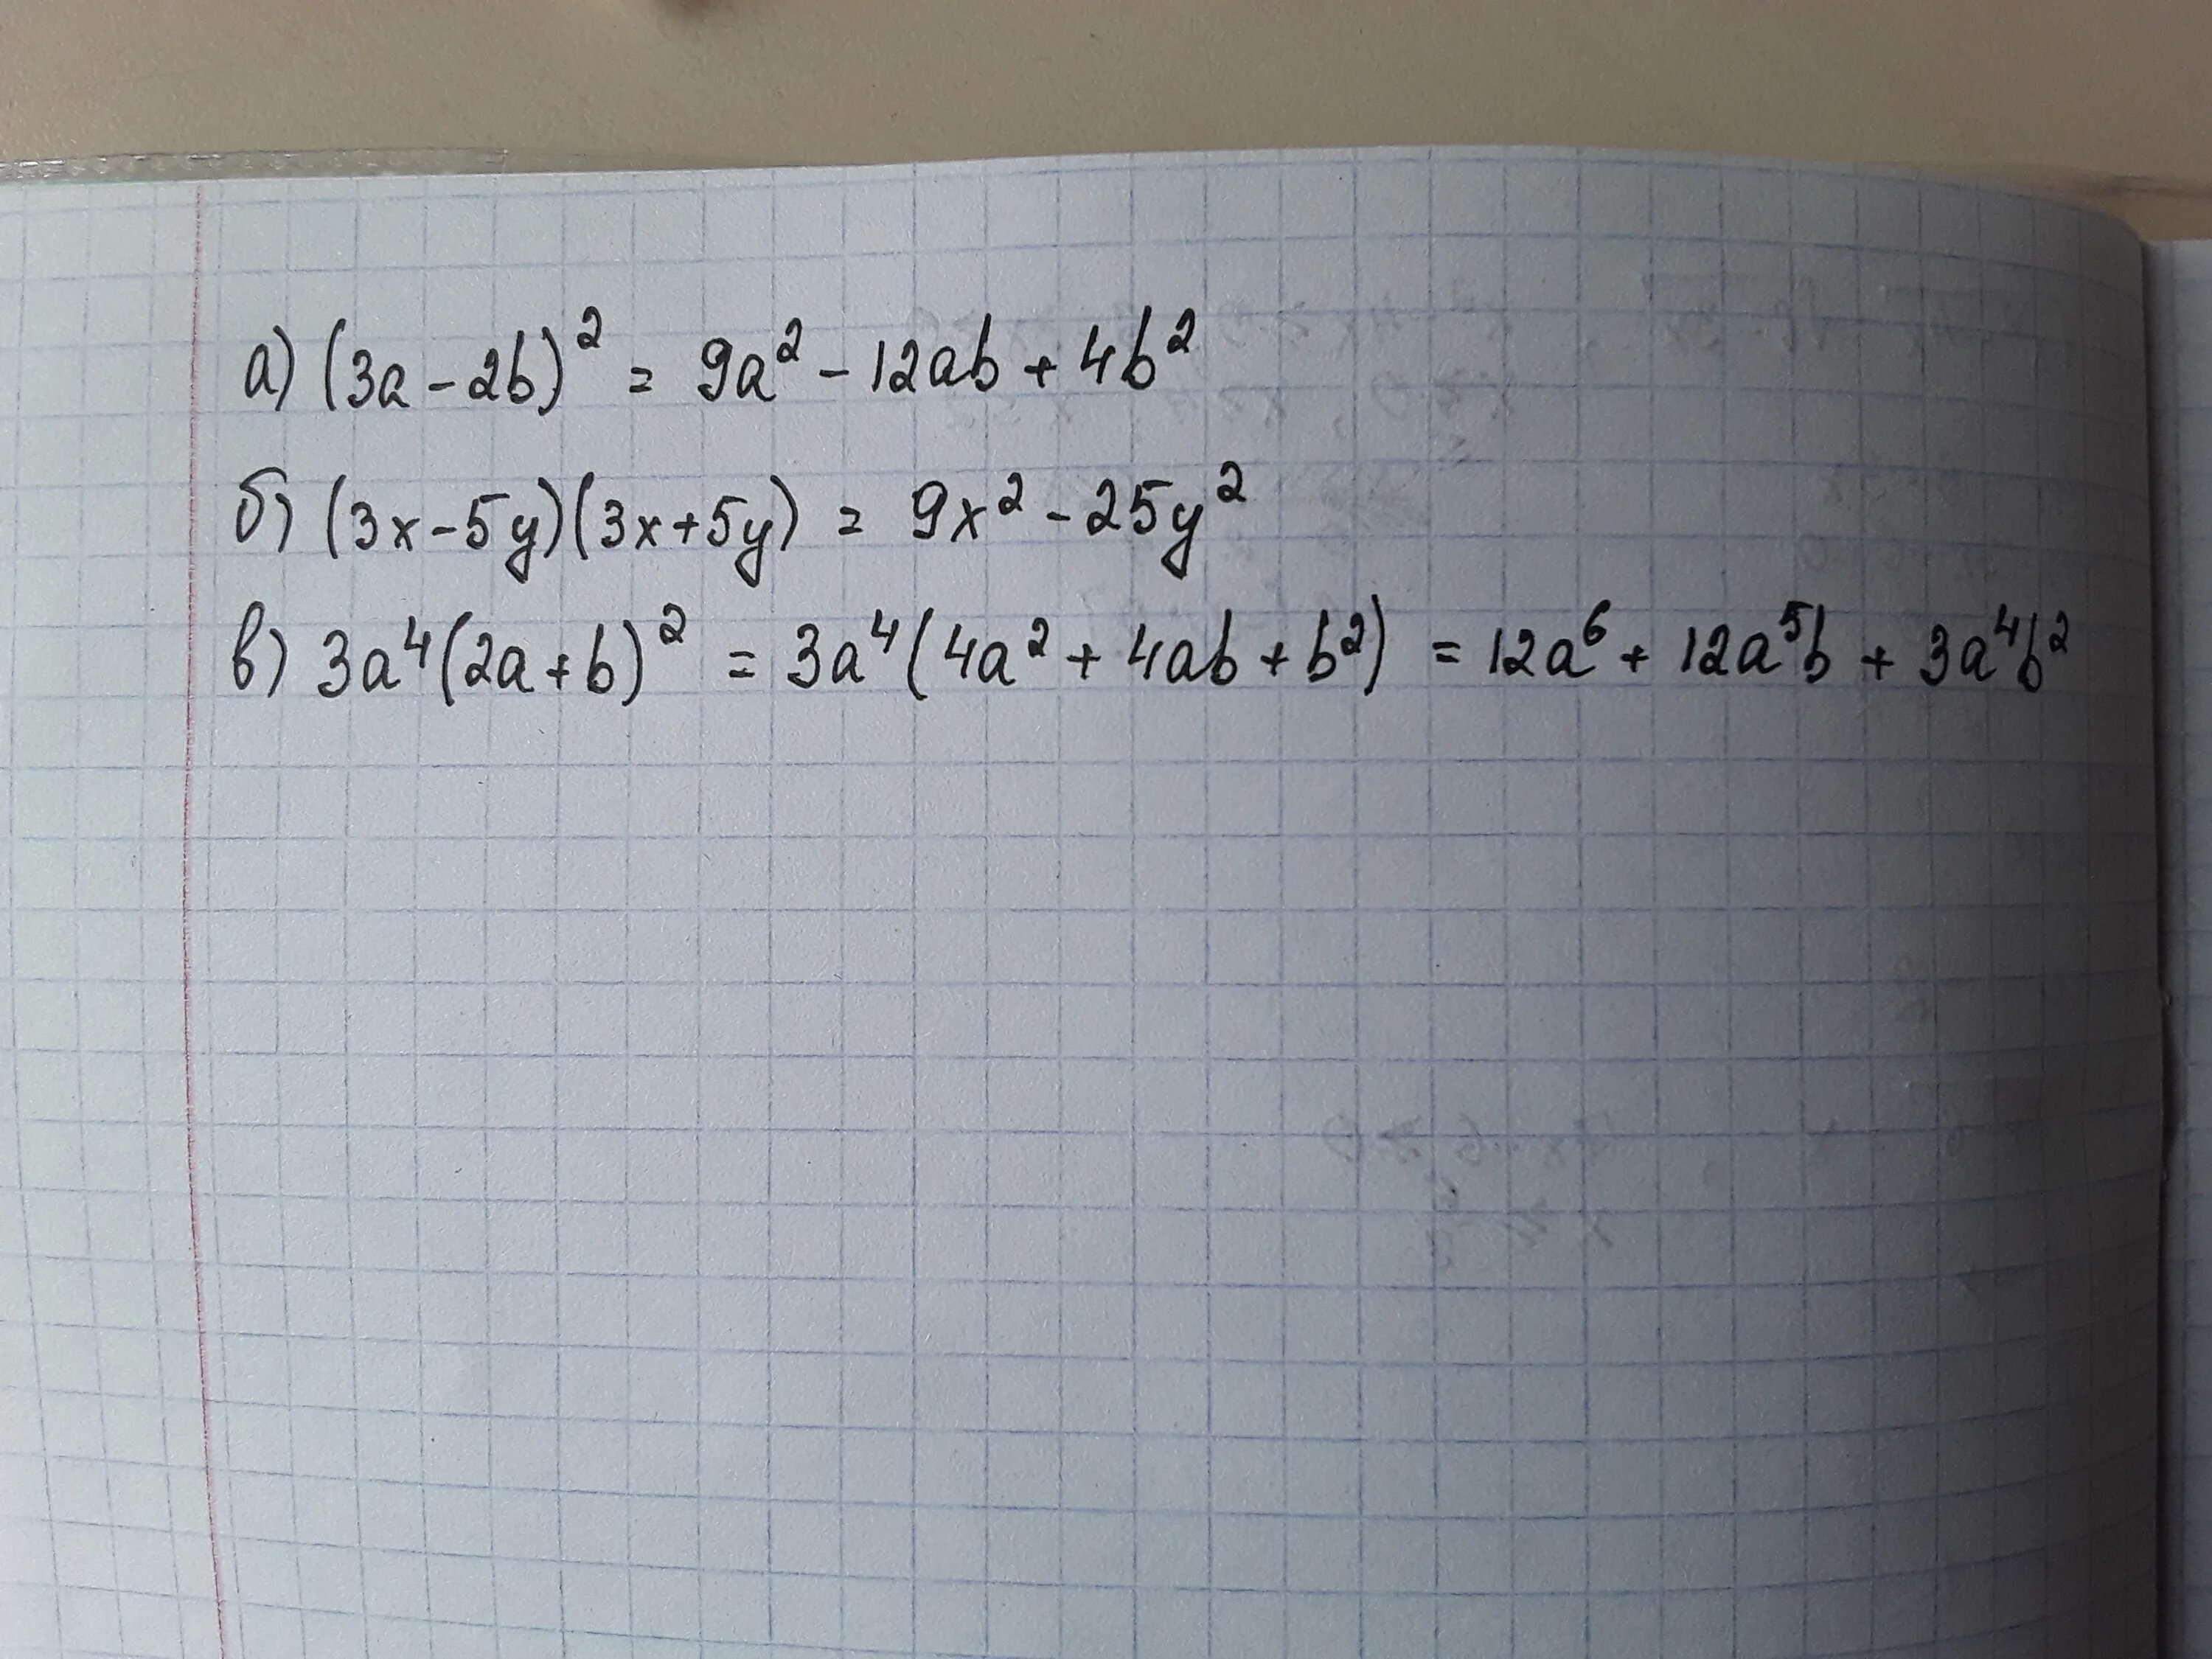 а) (3a - 2b)² = 9a² - 12ab + 4b²
б) (3x - 5y)(3x + 5y) = 9x² - 25y²
в) 3a⁴(2a + b)² = 3a⁴(4a² + 4ab + b²) = 12a⁶ + 12a⁵b + 3a⁴b²